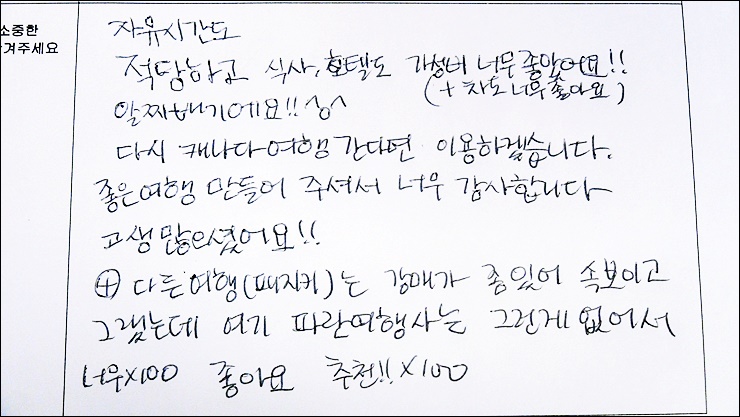 소중한
겨주세요
자유시간도
적당하고 식사, 호텔도 가성비 너무 좋았어요!!
(+ 차도 너무 좋아요)
알짜배기에요!! ^^
다시 캐나다여행 간다면 이용하겠습니다.
좋은여행 만들어 주셔서 너무 감사합니다
고생 많으셨어요!!
⊕ 다른여행(패지키)는 강매가 좀있어 속보이고
그랬는데 여기 파란여행사는 그런게 없어서
너무X100 좋아요 추천!! X100